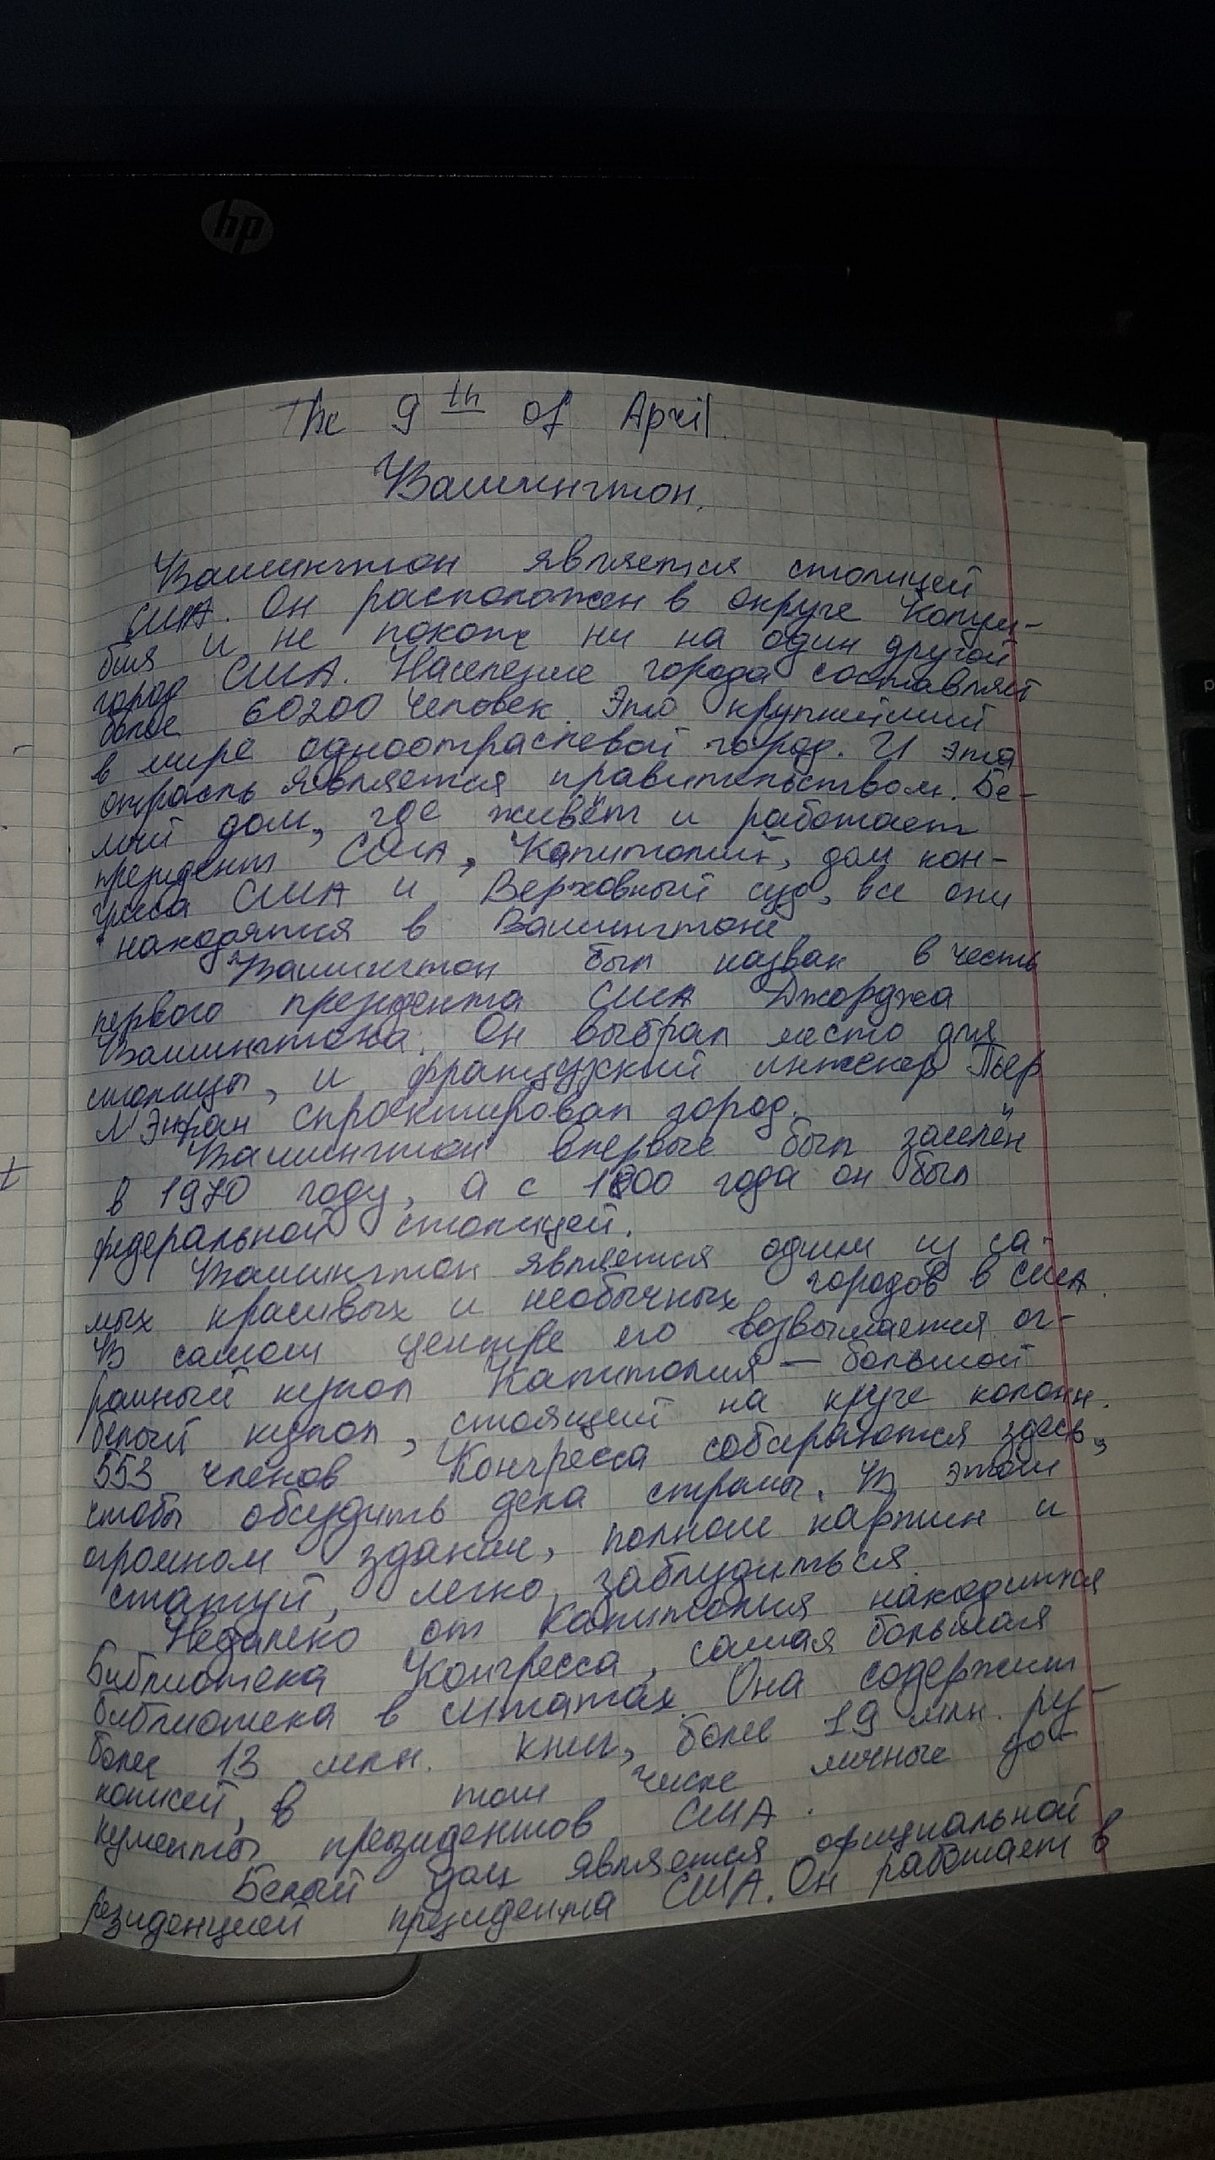 hp
The 9th of April.
Вашингтон.
Вашингтон является столицей
США. Он расположен в округе Колум-
бия и не похож ни на один другой
город США. Население города составляет
более 60200 человек. Это крупнейший
в мире одноотраслевой город. И эта
отрасль является правительством. Бе-
лый дом, где живёт и работает
президент США, Капитолий, дом кон-
гресса США и Верховный суд, все они
находятся в Вашингтоне
Вашингтон был назван в честь
первого президента США Джорджа
Вашингтона. Он выбрал место для
столицы, и французский инженер Пьер
Л'Энфан спроектировал город.
Вашингтон впервые был заселён
в 1970 году, а с 1800 года он был
федеральной столицей.
Вашингтон является одним из са-
мых красивых и необычных городов в США.
В самом центре его возвышается ог-
ромный купол Капитолия — большой
белый купол, стоящий на круге колонн.
553 членов Конгресса собираются здесь,
чтобы обсудить дела страны. В этом
огромном здании, полном картин и
статуй, легко заблудиться.
Недалеко от Капитолия находится
Библиотека Конгресса, самая большая
библиотека в штатах. Она содержит
более 13 млн. книг, более 19 млн. ру-
кописей, в том числе личные до-
кументы президентов США.
Белый дом является официальной
резиденцией президента США. Он работает в